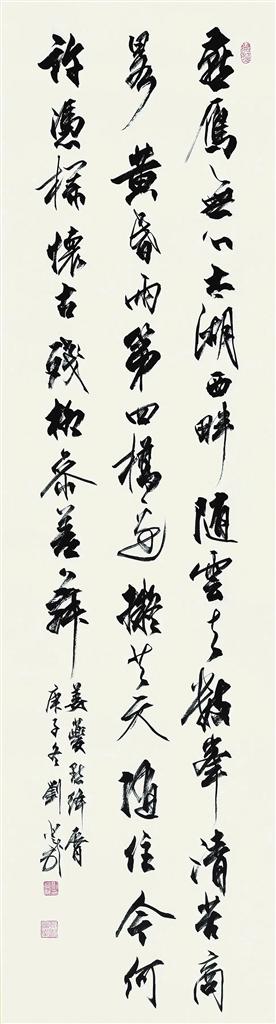 燕雁無心太湖西畔随雲去數峯清苦商
畧黄昏雨第四橋邊擬共天随住今何
許憑欄懷古殘柳參差舞
姜夔點絳脣
庚子冬劉